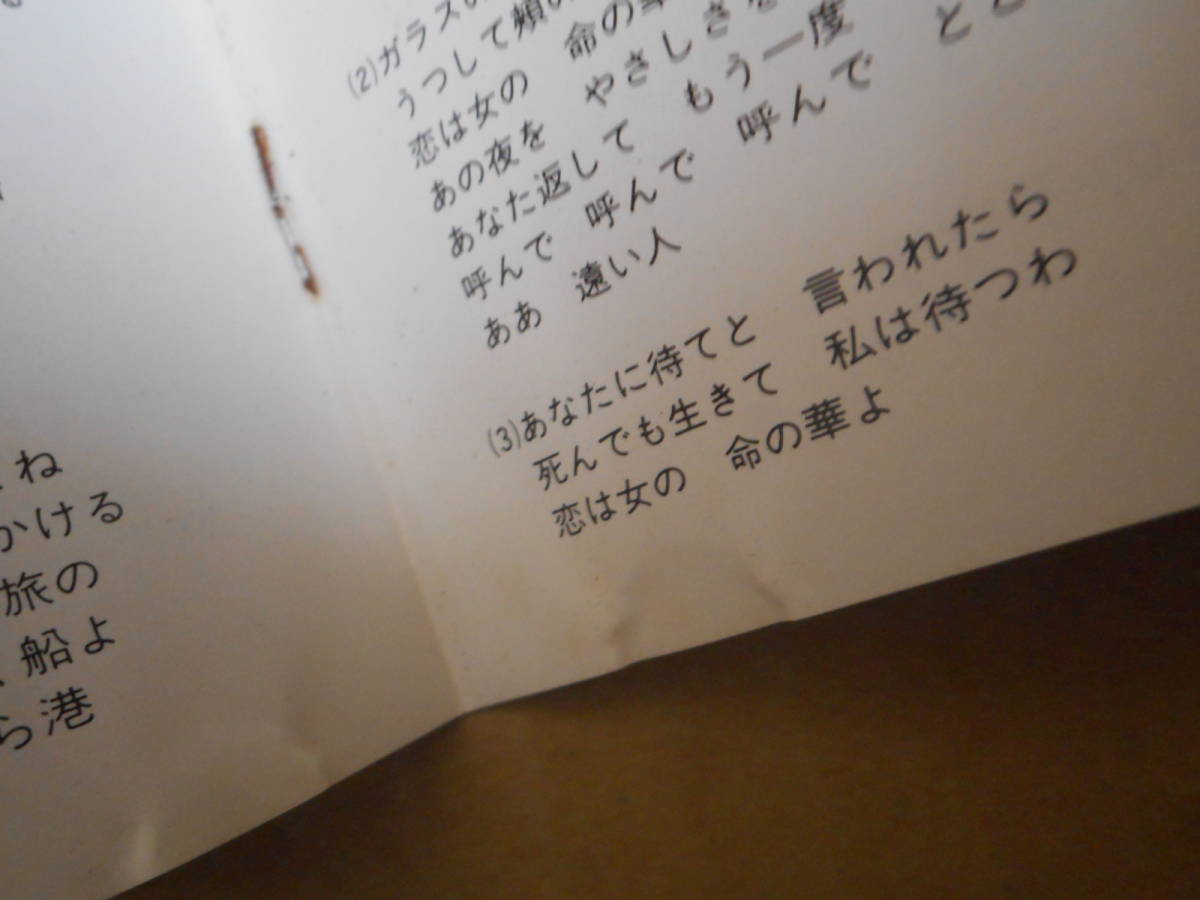 ね
かける
旅の
船よ
ら港
(2)ガラスの
うつして頬
恋は女の　命の華
あの夜を　やさしさを
あなた返して　もう一度
呼んで　呼んで　呼んで　と
ああ　遠い人
(3)あなたに待てと　言われたら
死んでも生きて　私は待つわ
恋は女の　命の華よ